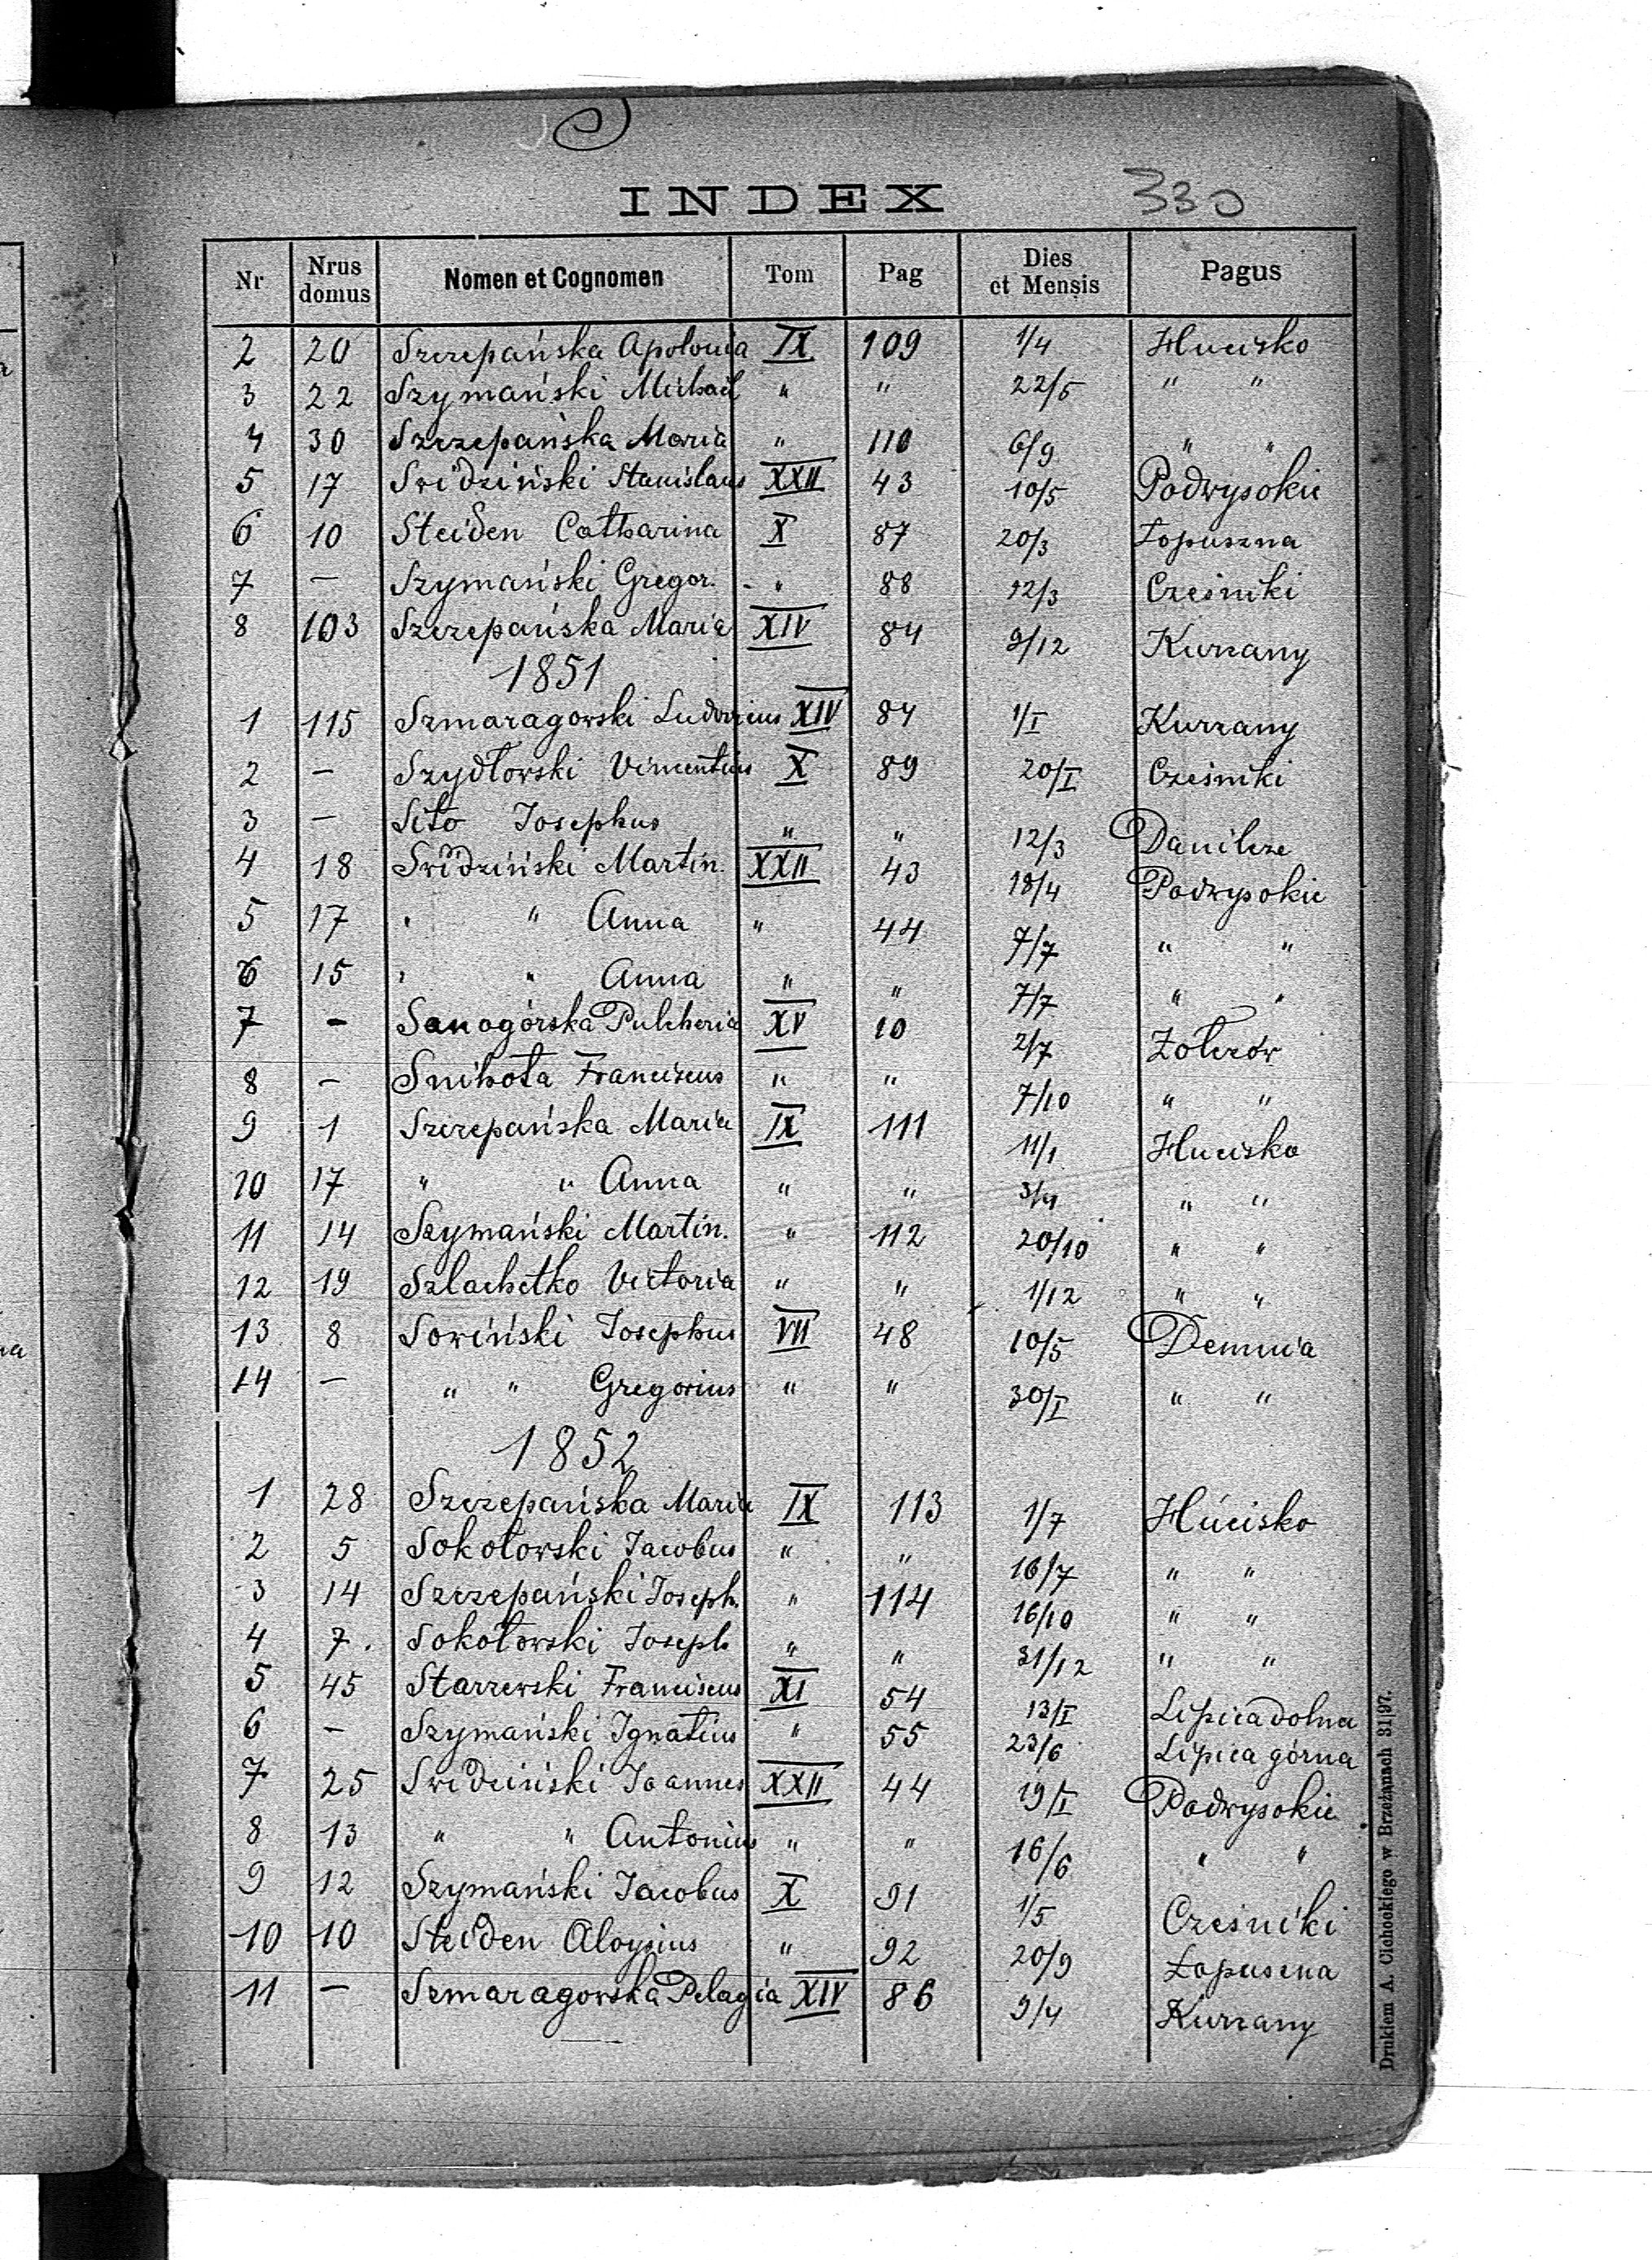 INDEX 330
Nr Nrus domus Nomen et Cognomen Tom Pag Dies et Mensis Pagus
2 20 Szczepańska Apolonia IX 109 1/4 Hucisko
3 22 Szymański Michael " " 22/5 " "
4 30 Szczepańska Maria " 110 6/9 " "
5 17 Swidziński Stanislaus XXII 43 10/5 Podwysokie
6 10 Steiden Catharina X 87 20/3 Łopuszna
7 — Szymański Gregor. " 88 12/3 Cześniki
8 103 Szczepańska Maria XIV 84 9/12 Kurzany
1851
1 115 Szmaragowski Ludovicus XIV 84 1/I Kurzany
2 — Szydłowski Vincentius X 89 20/I Cześniki
3 — Sito Josephus " " 12/3 Danilcze
4 18 Swidziński Martin. XXII 43 18/4 Podwysokie
5 17 " " Anna " 44 7/7 " "
6 15 " " Anna " " 7/7 " "
7 — Sanogórska Pulcheria XV 10 2/7 Żołczów
8 — Snihota Franciscus " " 7/10 " "
9 1 Szczepańska Maria IX 111 11/1 Hucisko
10 17 " " Anna " " 3/4 " "
11 14 Szymański Martin. " 112 20/10 " "
12 19 Szlachetko Victoria " " 1/12 " "
13 8 Sowiński Josephus VII 48 10/5 Demnia
14 — " " Gregorius " " 30/I " "
1852
1 28 Szczepańska Maria IX 113 1/7 Hucisko
2 5 Sokołowski Jacobus " " 16/7 " "
3 14 Szczepański Joseph. " 114 16/10 " "
4 7. Sokołowski Joseph " " 31/12 " "
5 45 Starzewski Franciscus XI 54 13/I Lipica dolna
6 — Szymański Ignatius " 55 23/6 Lipica górna
7 25 Swidziński Joannes XXII 44 19/I Podwysokie
8 13 " " Antonius " " 16/6 " "
9 12 Szymański Jacobus X 91 1/5 Cześniki
10 10 Steiden Aloysius " 92 20/9 Łopuszna
11 — Szmaragowska Pelagia XIV 86 9/4 Kurzany
Drukiem A. Cichockiego w Brzeżanach 31/97.